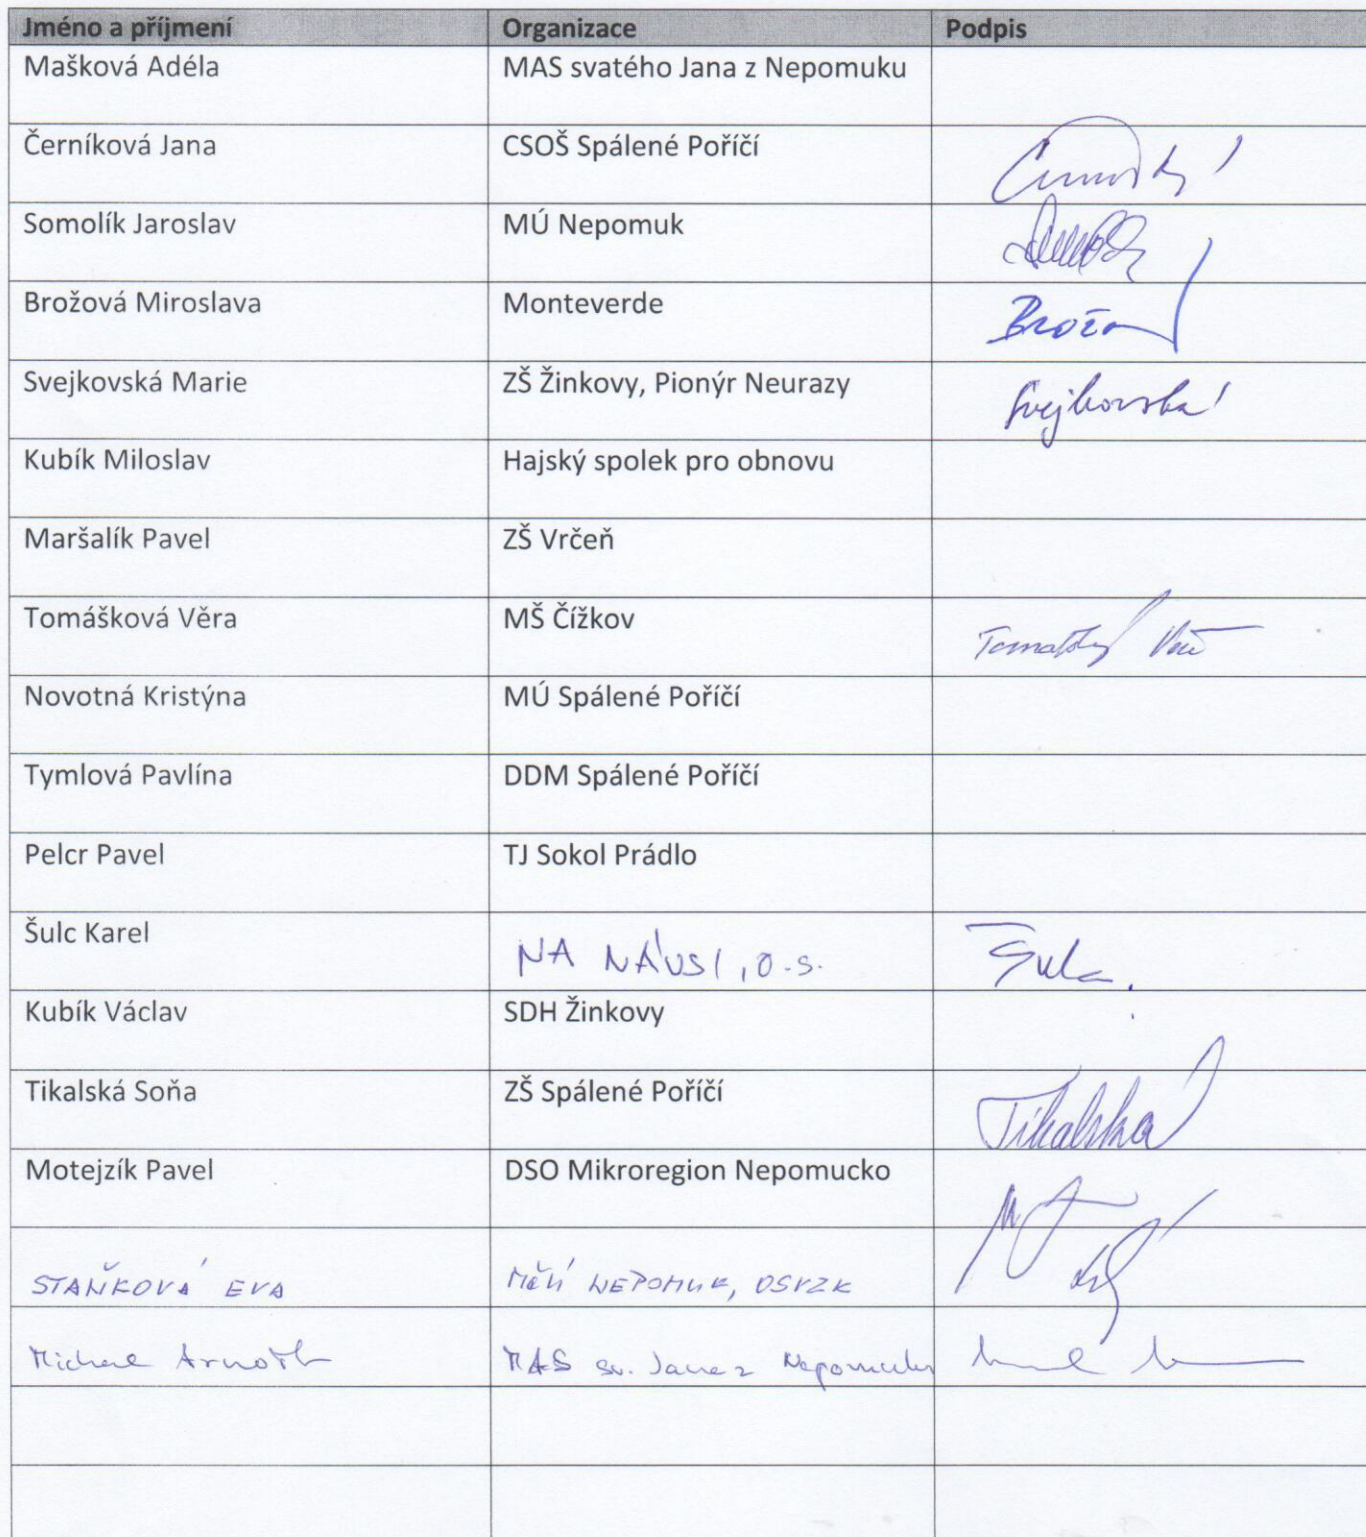 Jméno a příjmení Organizace Podpis
Mašková Adéla MAS svatého Jana z Nepomuku
Černíková Jana CSOŠ Spálené Poříčí
Somolík Jaroslav MÚ Nepomuk
Brožová Miroslava Monteverde
Svejkovská Marie ZŠ Žinkovy, Pionýr Neurazy Svejkovská
Kubík Miloslav Hajský spolek pro obnovu
Maršalík Pavel ZŠ Vrčeň
Tomášková Věra MŠ Čížkov
Novotná Kristýna MÚ Spálené Poříčí
Tymlová Pavlína DDM Spálené Poříčí
Pelcr Pavel TJ Sokol Prádlo
Šulc Karel NA NÁVSI, O.S.
Kubík Václav SDH Žinkovy
Tikalská Soňa ZŠ Spálené Poříčí Tikalská
Motejzík Pavel DSO Mikroregion Nepomucko
STAŇKOVÁ EVA NEPOMUK, OSVZK
Michael MAS sv. Jana z Nepomuku